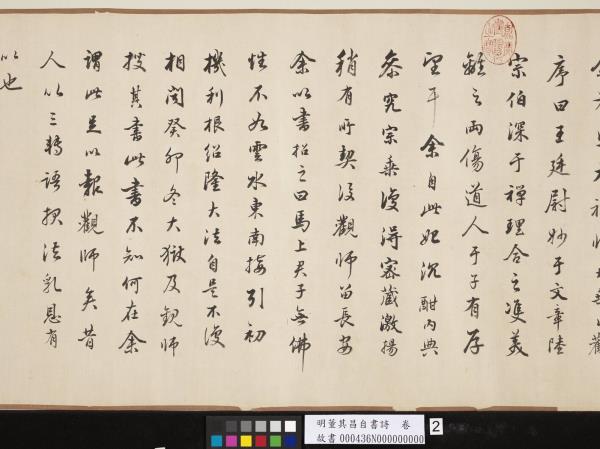 序曰王廷尉妙于文章陸
宗伯深于禪理合之雙美
離之兩傷道人于子有厚
望耳余自此始沉酣內典
參究宗乘復得密藏激揚
稍有所契後觀師留長安
余以書招之曰馬上君子無佛
性不如雲水東南接引初
機利根紹隆大法自是不復
相聞癸卯冬大獄及觀師
搜其書此書不知何在余
謂此足以報觀師矣昔
人以三轉語報法乳恩有
以也
明董其昌自書詩 卷
故書 000436N000000000
2